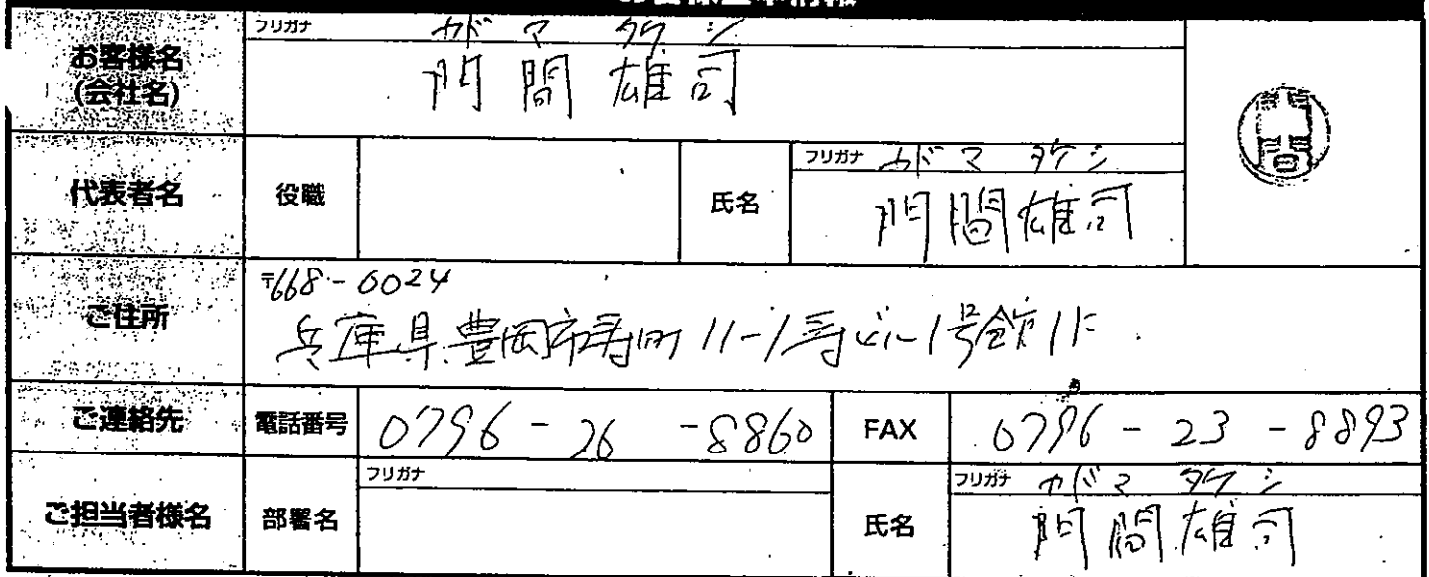 お客様基本情報
お客様名
(会社名)
フリガナ カドマ タケシ
門間雄司
門間
代表者名 役職 氏名
フリガナ カドマ タケシ
門間雄司
ご住所
〒668-0024
兵庫県豊岡市寿町11-1寿ビル1号館1F
ご連絡先 電話番号 0796-26-8860 FAX 0796-23-8893
ご担当者様名 部署名 フリガナ
氏名 フリガナ カドマ タケシ
門間雄司